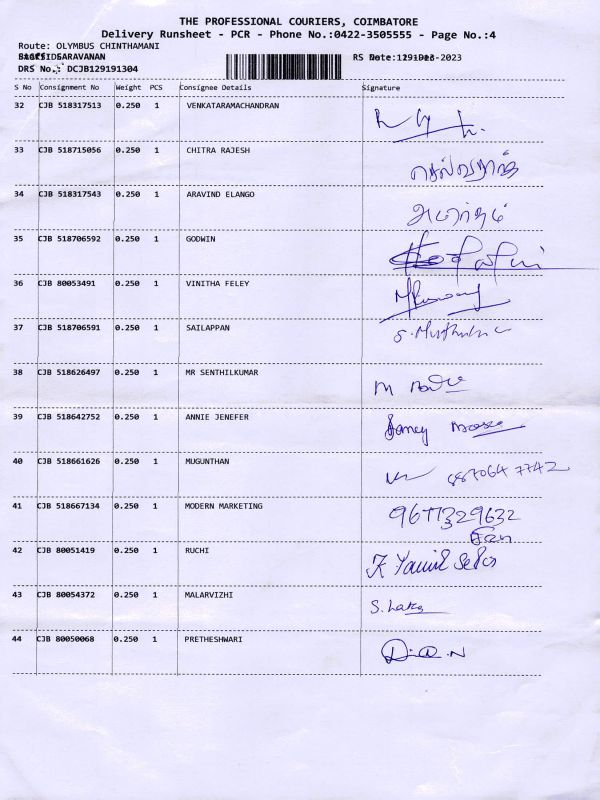 THE PROFESSIONAL COURIERS, COIMBATORE
Delivery Runsheet - PCR - Phone No.:0422-3505555 - Page No.:4
Route: OLYMBUS CHINTHAMANI
SARAVANAN
DRS No.: DCJB129191304
S No Consignment No Weight PCS Consignee Details Signature
32 CJB 518317513 0.250 1 VENKATARAMACHANDRAN
33 CJB 518715056 0.250 1 CHITRA RAJESH
34 CJB 518317543 0.250 1 ARAVIND ELANGO
35 CJB 518706592 0.250 1 GODWIN
36 CJB 80053491 0.250 1 VINITHA FELEY
37 CJB 518706591 0.250 1 SAILAPPAN
38 CJB 518626497 0.250 1 MR SENTHILKUMAR
39 CJB 518642752 0.250 1 ANNIE JENEFER
40 CJB 518661626 0.250 1 MUGUNTHAN 887064 7742
41 CJB 518667134 0.250 1 MODERN MARKETING 9677329632
42 CJB 80051419 0.250 1 RUCHI
43 CJB 80054372 0.250 1 MALARVIZHI
44 CJB 80050068 0.250 1 PRETHESHWARI